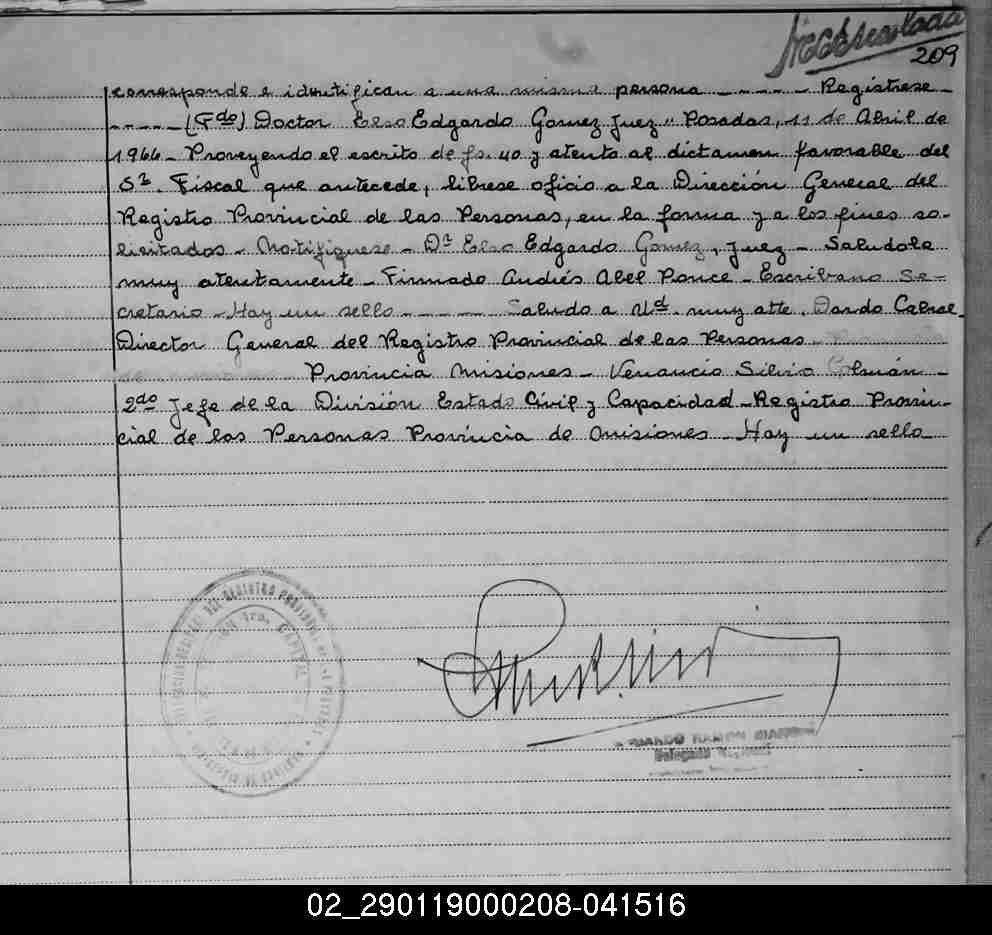 209
corresponde e identifican a una misma persona ----- Regístrese-
-----(Fdo) Doctor Elso Edgardo Gomez Juez" Posadas, 11 de Abril de
1966- Proveyendo el escrito de fs. 40 y atento al dictamen favorable del
Sr. Fiscal que antecede, líbrese oficio a la Dirección General del
Registro Provincial de las Personas, en la forma y a los fines so-
licitados - Notifíquese - Dr Elso Edgardo Gomez, Juez - Saludole
muy atentamente - Firmado Andrés Abel Ponce - Escribano Se-
cretario - Hay un sello ----- Saludo a Ud. muy atte. Dardo Cabral
Director General del Registro Provincial de las Personas -
Provincia Misiones - Venancio Silvio
2do Jefe de la División Estado Civil y Capacidad - Registro Provin-
cial de las Personas Provincia de Misiones - Hay un sello
DEL REGISTRO
CAPITAL
RAMON
Delegado
02_290119000208-041516